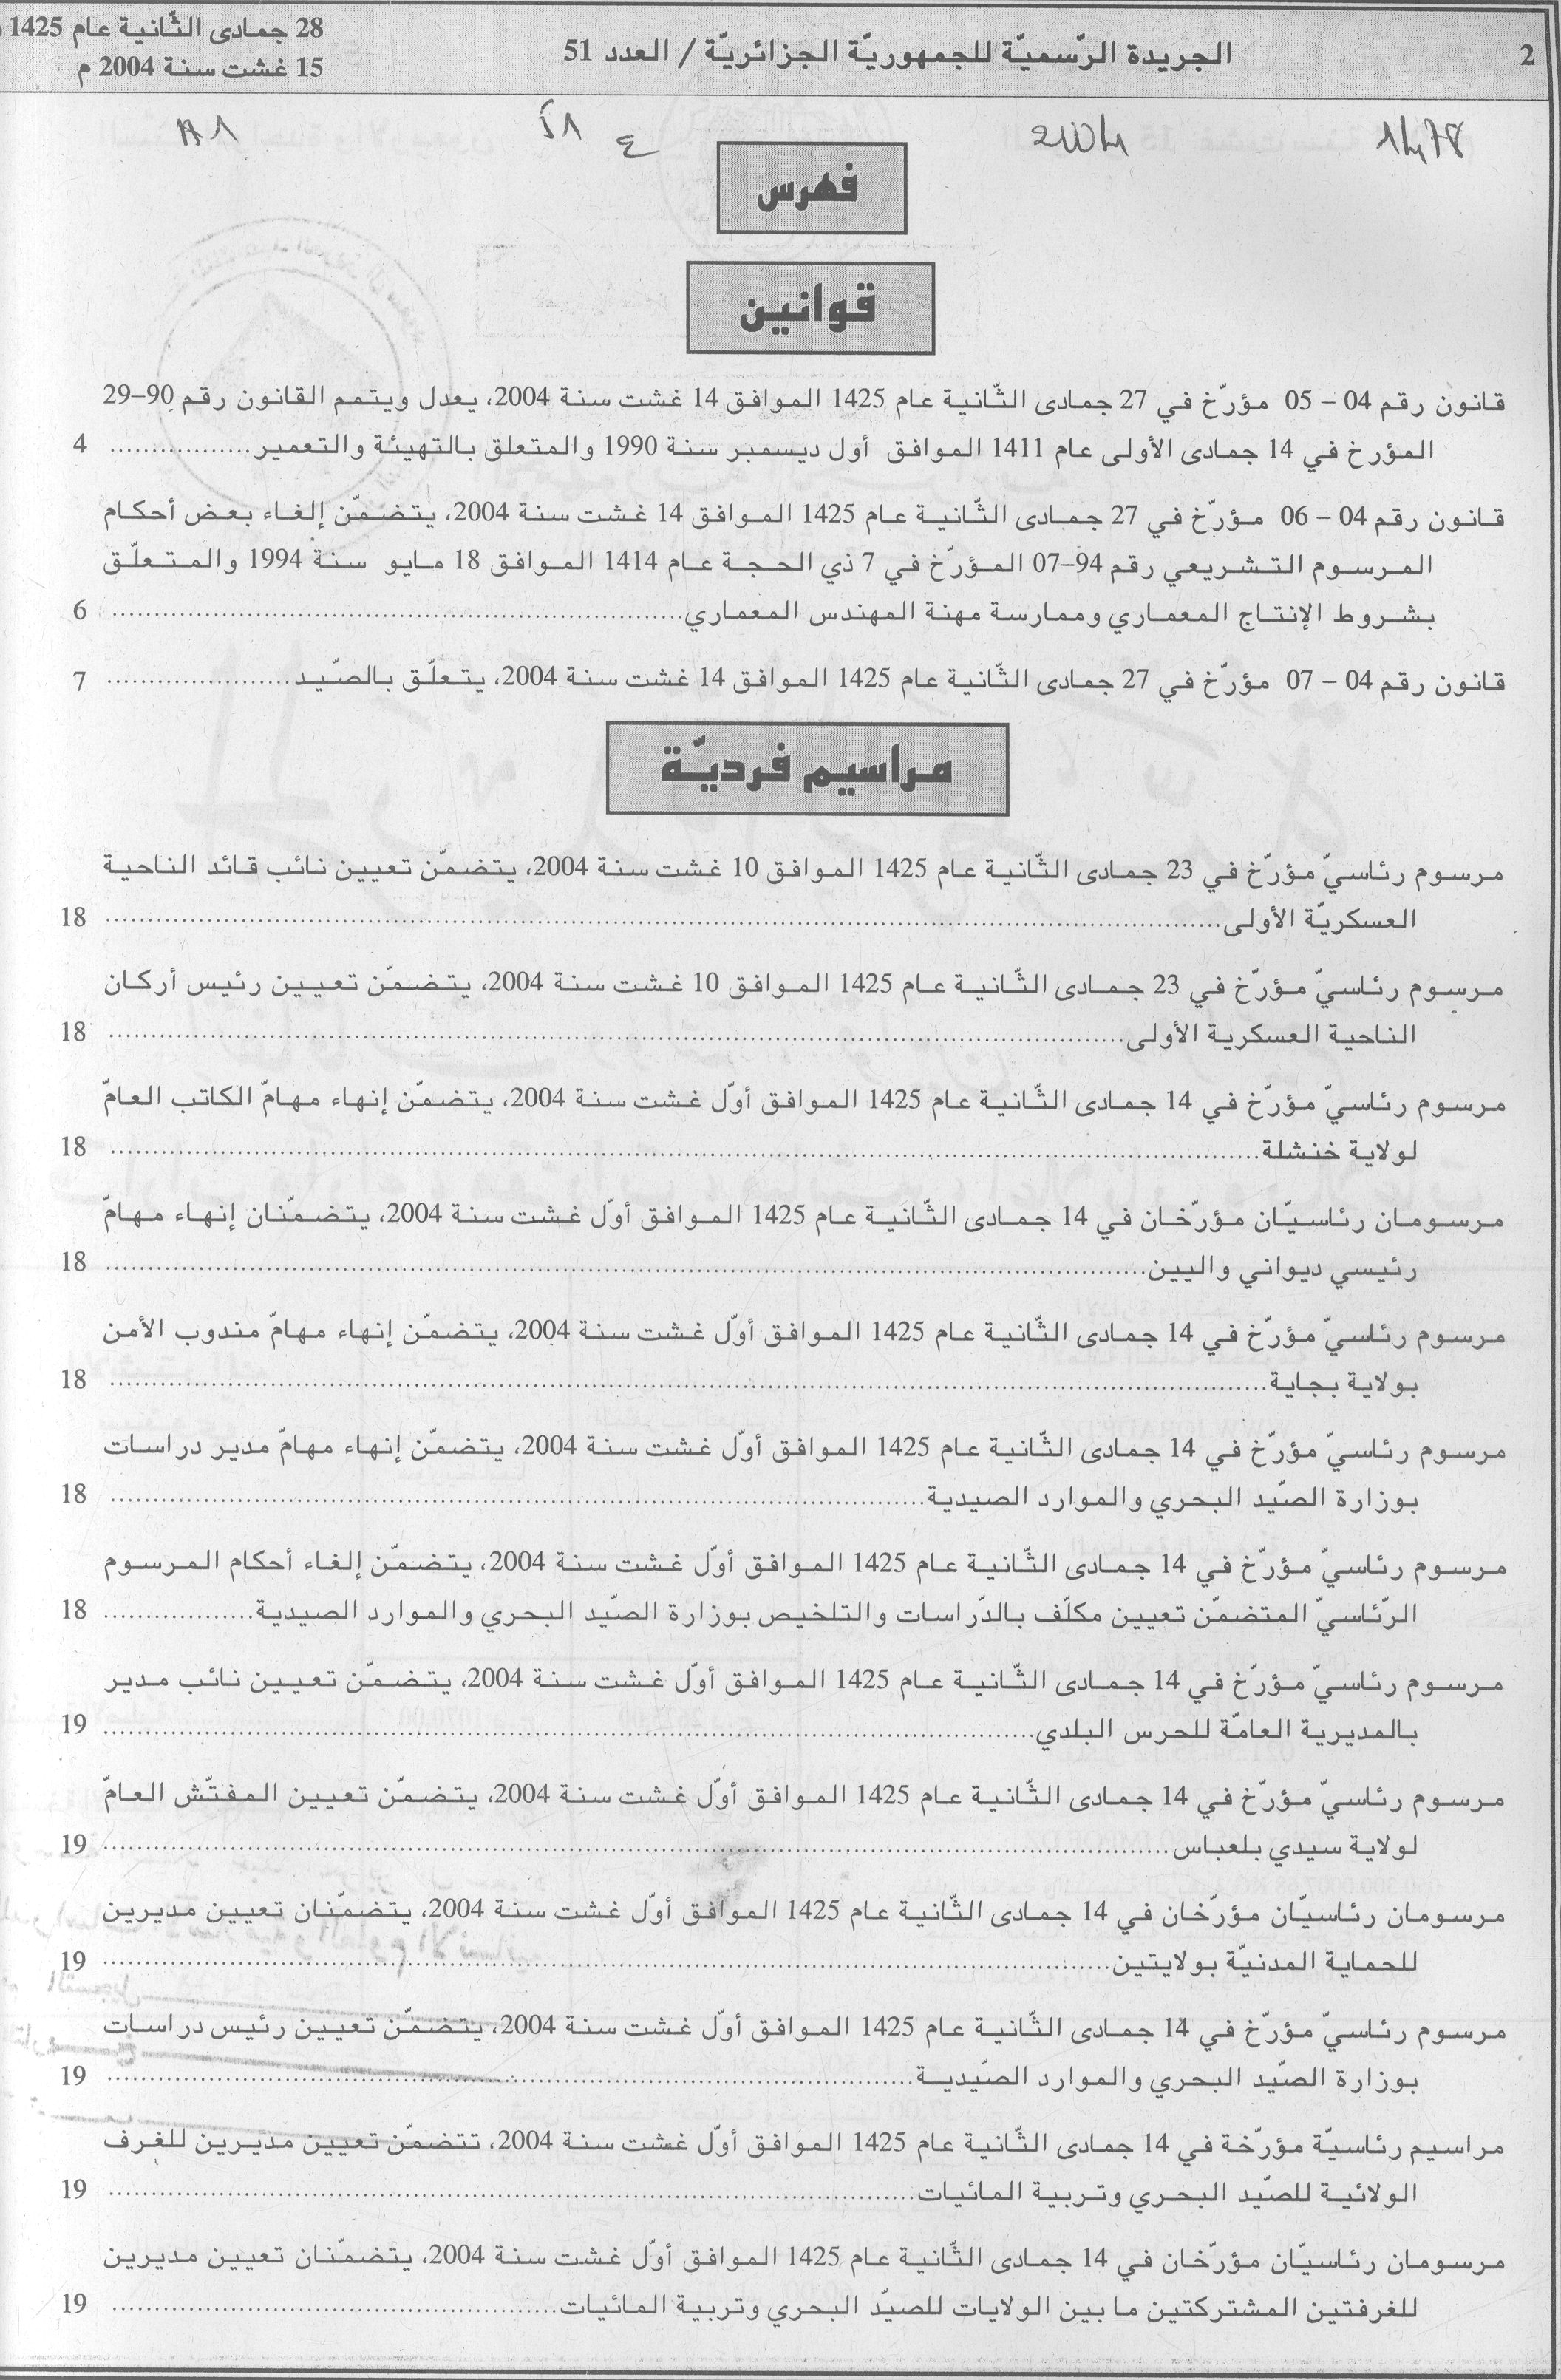 2
الجريدة الرّسميّة للجمهوريّة الجزائريّة / العدد 51
28 جمادى الثّانية عام 1425
15 غشت سنة 2004 م
1478
2004
ع
فهرس
قوانين
قانون رقم 04 – 05 مؤرّخ في 27 جمادى الثّانية عام 1425 الموافق 14 غشت سنة 2004، يعدل ويتمم القانون رقم 90–29
المؤرخ في 14 جمادى الأولى عام 1411 الموافق أول ديسمبر سنة 1990 والمتعلق بالتهيئة والتعمير ................ 4
قانون رقم 04 – 06 مؤرّخ في 27 جمادى الثّانية عام 1425 الموافق 14 غشت سنة 2004، يتضمّن إلغاء بعض أحكام
المرسوم التشريعي رقم 94–07 المؤرّخ في 7 ذي الحجة عام 1414 الموافق 18 مايو سنة 1994 والمتعلّق
بشروط الإنتاج المعماري وممارسة مهنة المهندس المعماري ................ 6
قانون رقم 04 – 07 مؤرّخ في 27 جمادى الثّانية عام 1425 الموافق 14 غشت سنة 2004، يتعلّق بالصّيد ................ 7
مراسيم فرديّة
مرسوم رئاسيّ مؤرّخ في 23 جمادى الثّانية عام 1425 الموافق 10 غشت سنة 2004، يتضمّن تعيين نائب قائد الناحية
العسكريّة الأولى ................ 18
مرسوم رئاسيّ مؤرّخ في 23 جمادى الثّانية عام 1425 الموافق 10 غشت سنة 2004، يتضمّن تعيين رئيس أركان
الناحية العسكرية الأولى ................ 18
مرسوم رئاسيّ مؤرّخ في 14 جمادى الثّانية عام 1425 الموافق أوّل غشت سنة 2004، يتضمّن إنهاء مهامّ الكاتب العامّ
لولاية خنشلة ................ 18
مرسومان رئاسيّان مؤرّخان في 14 جمادى الثّانية عام 1425 الموافق أوّل غشت سنة 2004، يتضمّنان إنهاء مهامّ
رئيسي ديواني واليين ................ 18
مرسوم رئاسيّ مؤرّخ في 14 جمادى الثّانية عام 1425 الموافق أوّل غشت سنة 2004، يتضمّن إنهاء مهامّ مندوب الأمن
بولاية بجاية ................ 18
مرسوم رئاسيّ مؤرّخ في 14 جمادى الثّانية عام 1425 الموافق أوّل غشت سنة 2004، يتضمّن إنهاء مهامّ مدير دراسات
بوزارة الصّيد البحري والموارد الصيدية ................ 18
مرسوم رئاسيّ مؤرّخ في 14 جمادى الثّانية عام 1425 الموافق أوّل غشت سنة 2004، يتضمّن إلغاء أحكام المرسوم
الرّئاسيّ المتضمّن تعيين مكلّف بالدّراسات والتلخيص بوزارة الصّيد البحري والموارد الصيدية ................ 18
مرسوم رئاسيّ مؤرّخ في 14 جمادى الثّانية عام 1425 الموافق أوّل غشت سنة 2004، يتضمّن تعيين نائب مدير
بالمديرية العامّة للحرس البلدي ................ 19
مرسوم رئاسيّ مؤرّخ في 14 جمادى الثّانية عام 1425 الموافق أوّل غشت سنة 2004، يتضمّن تعيين المفتّش العامّ
لولاية سيدي بلعباس ................ 19
مرسومان رئاسيّان مؤرّخان في 14 جمادى الثّانية عام 1425 الموافق أوّل غشت سنة 2004، يتضمّنان تعيين مديرين
للحماية المدنيّة بولايتين ................ 19
مرسوم رئاسيّ مؤرّخ في 14 جمادى الثّانية عام 1425 الموافق أوّل غشت سنة 2004، يتضمّن تعيين رئيس دراسات
بوزارة الصّيد البحري والموارد الصّيدية ................ 19
مراسيم رئاسيّة مؤرّخة في 14 جمادى الثّانية عام 1425 الموافق أوّل غشت سنة 2004، تتضمّن تعيين مديرين للغرف
الولائية للصّيد البحري وتربية المائيات ................ 19
مرسومان رئاسيّان مؤرّخان في 14 جمادى الثّانية عام 1425 الموافق أوّل غشت سنة 2004، يتضمّنان تعيين مديرين
للغرفتين المشتركتين ما بين الولايات للصيّد البحري وتربية المائيات ................ 19